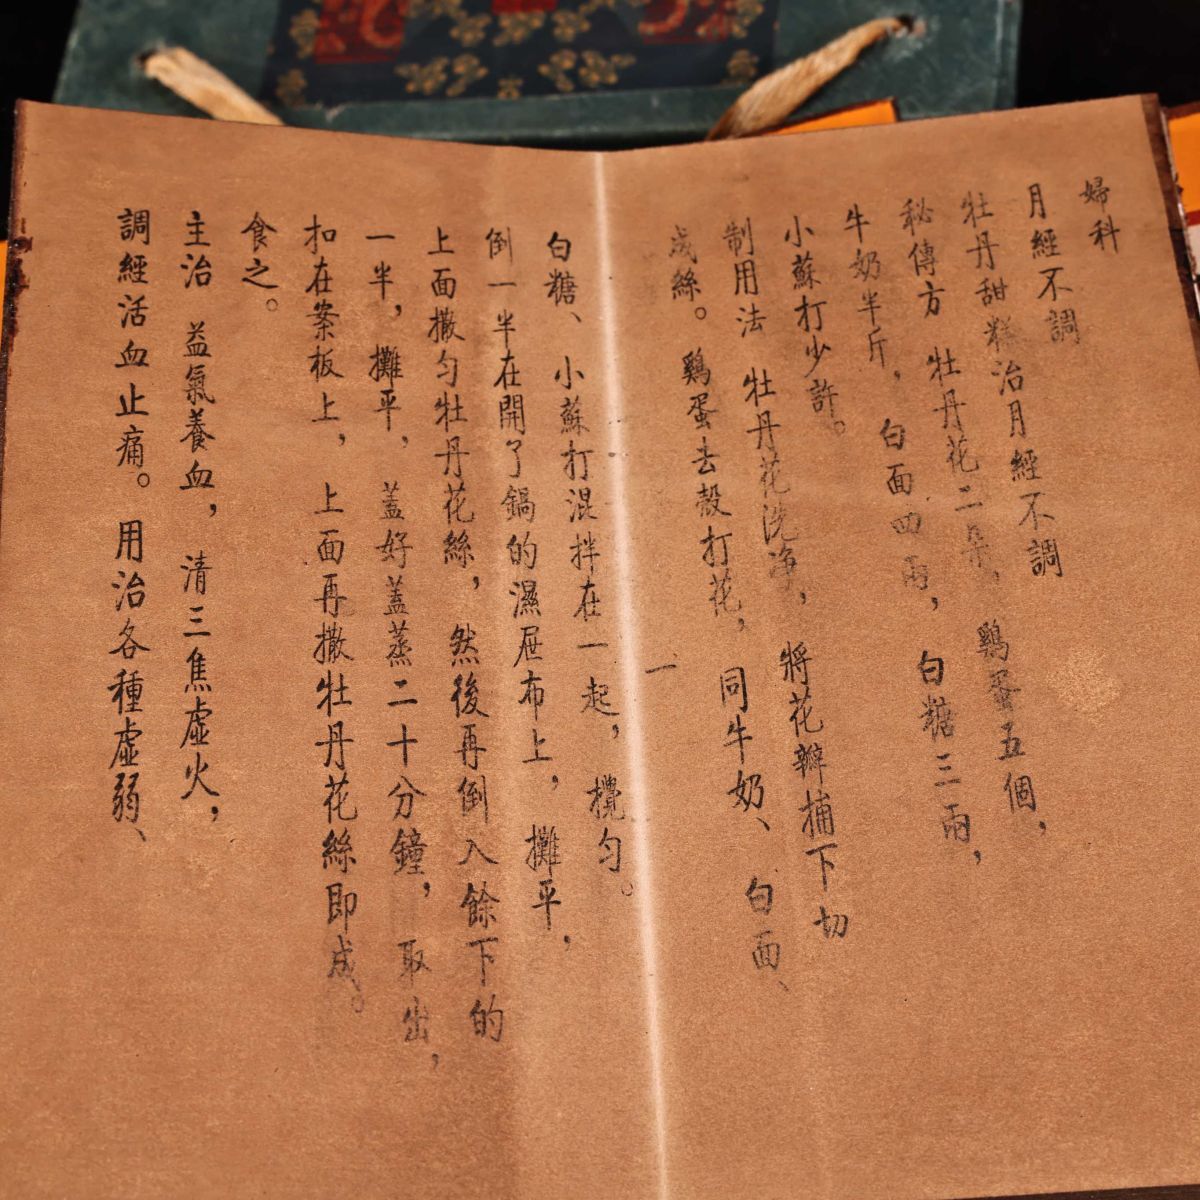 婦科
月經不調
牡丹甜糕治月經不調
秘傳方　牡丹花二朵，鷄蛋五個，
牛奶半斤，白面四兩，白糖三兩，
小蘇打少許。
制用法　牡丹花洗净，將花瓣捕下切
成絲。鷄蛋去殼打花，同牛奶、白面、
一
白糖、小蘇打混拌在一起，攪勻。
倒一半在開了鍋的濕屉布上，攤平，
上面撒勻牡丹花絲，然後再倒入餘下的
一半，攤平，蓋好蓋蒸二十分鐘，取出，
扣在案板上，上面再撒牡丹花絲即成。
食之。
主治　益氣養血，清三焦虛火，
調經活血止痛。用治各種虛弱、